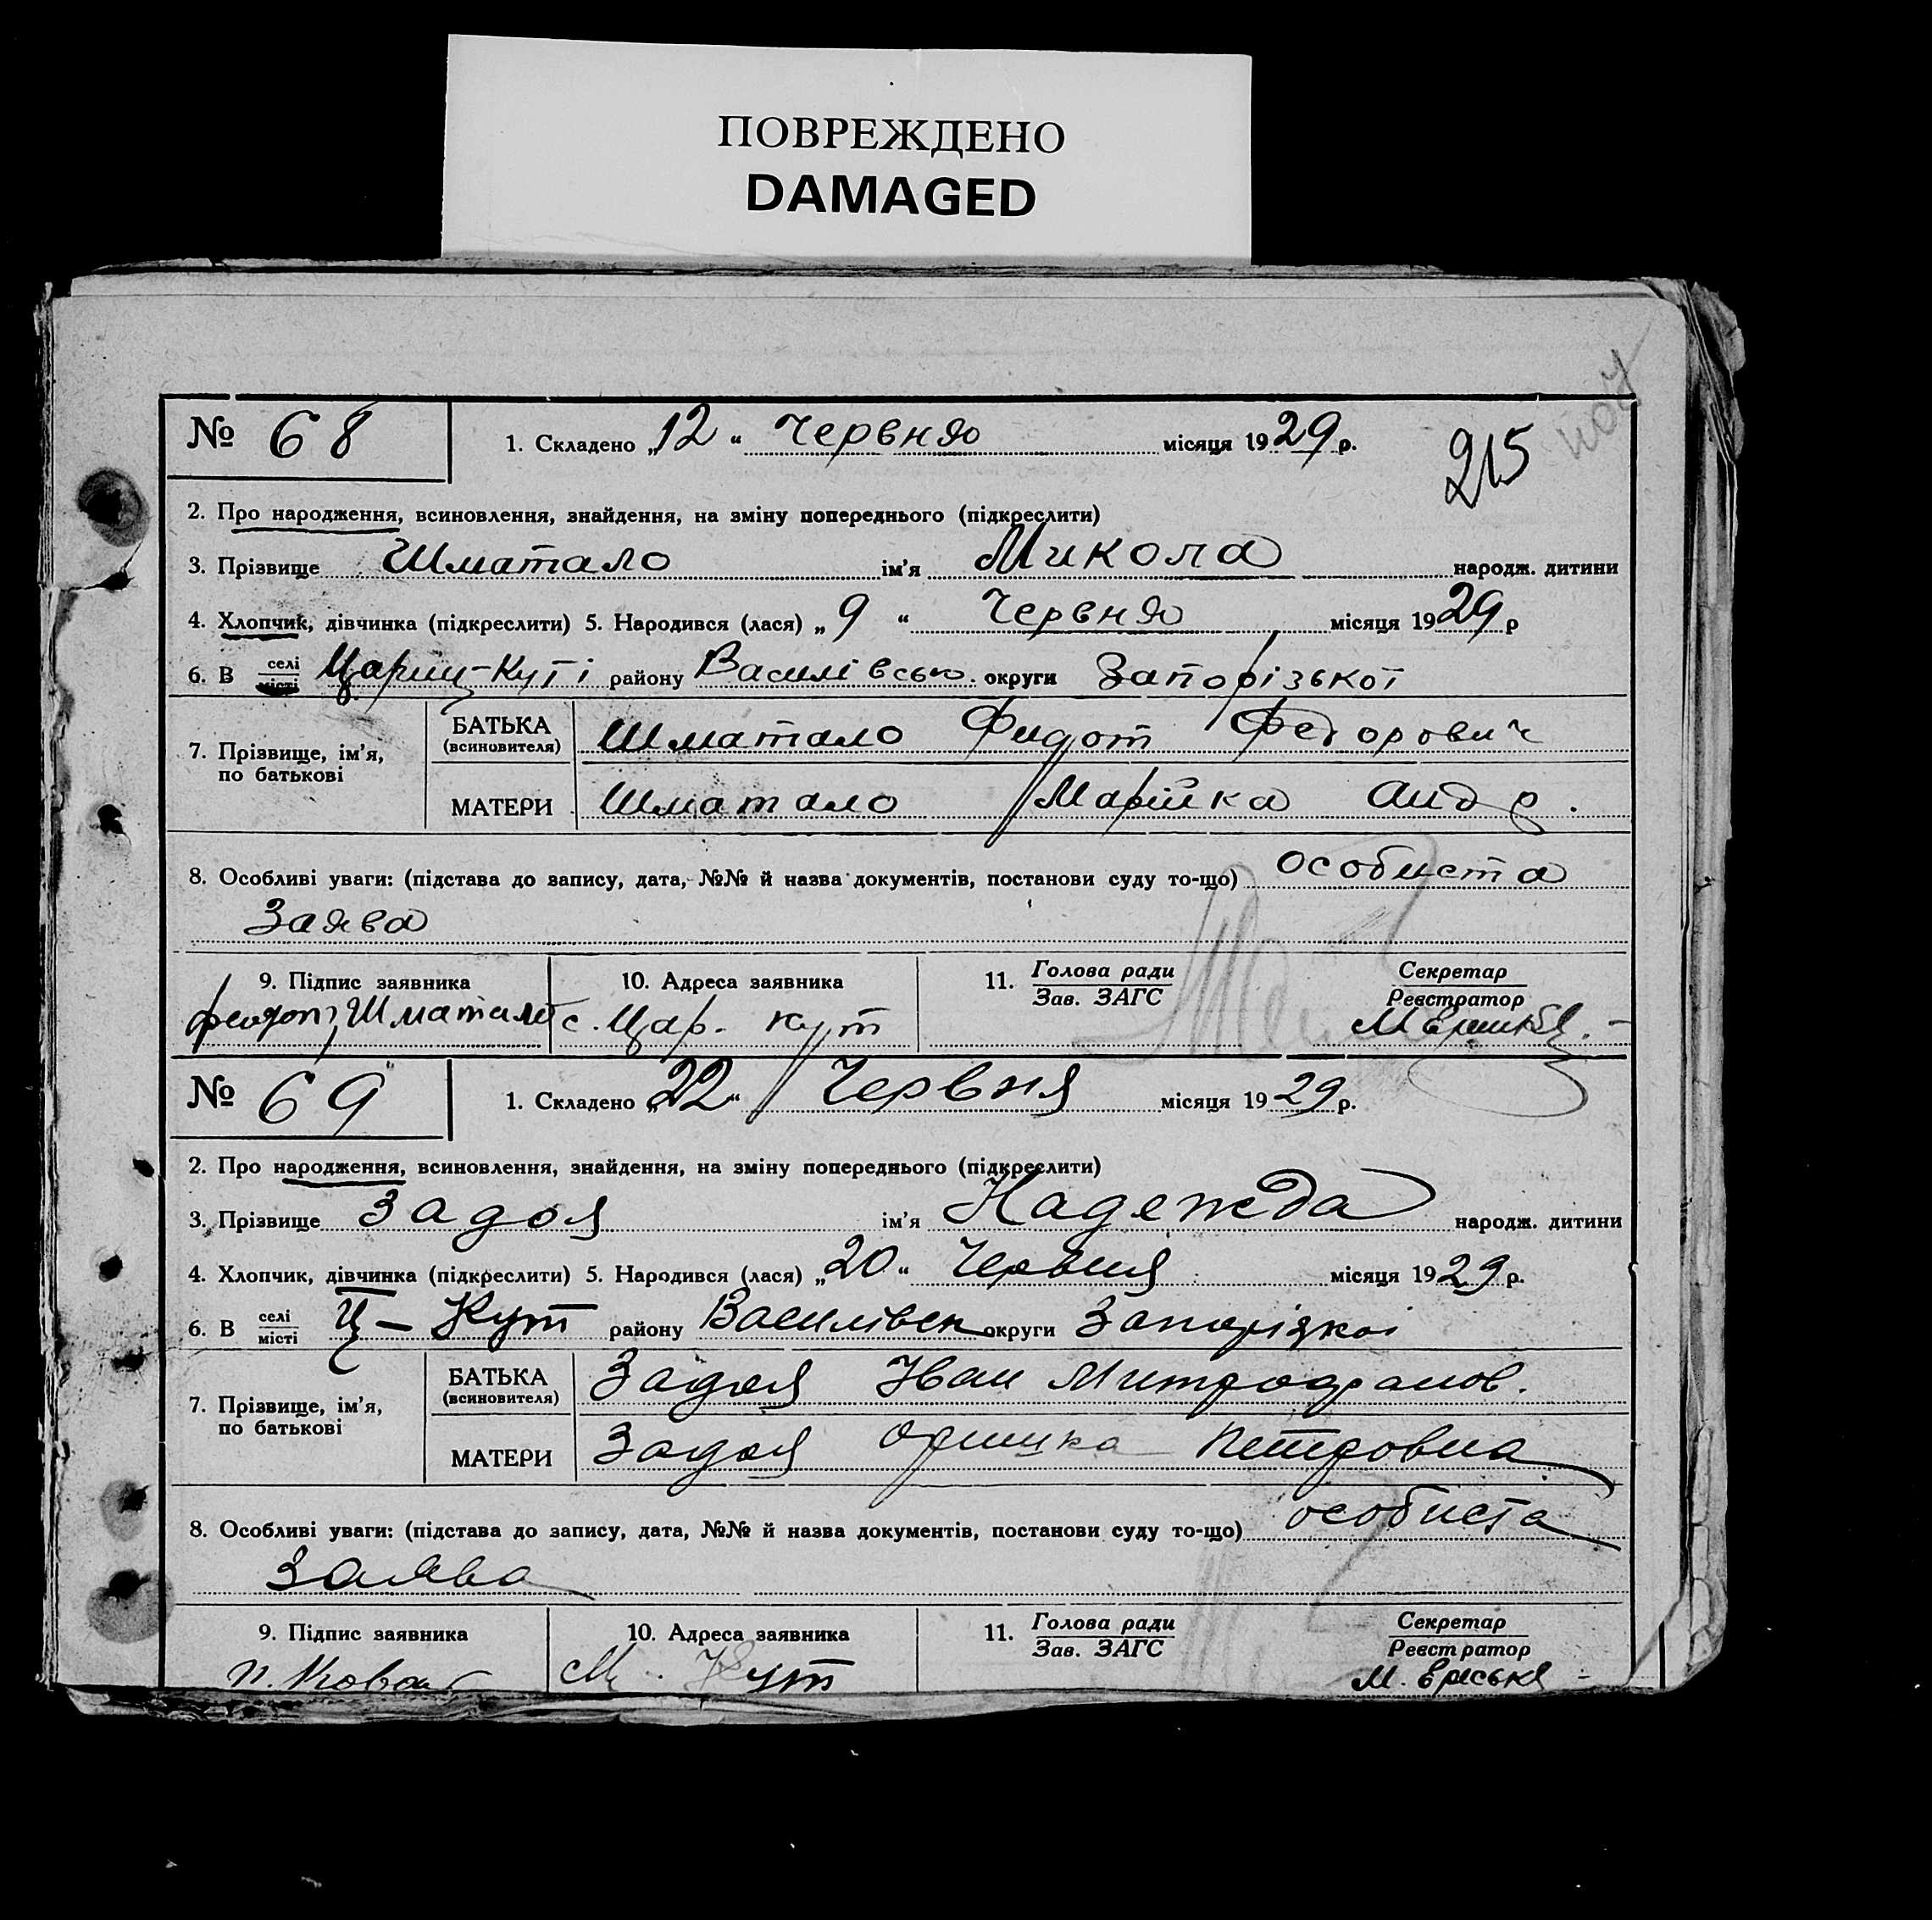 ПОВРЕЖДЕНО
DAMAGED
№ 68
1. Складено „12“ Червня місяця 1929 р.
215
2. Про народження, всиновлення, знайдення, на зміну попереднього (підкреслити)
3. Прізвище Шматало ім’я Микола народж. дитини
4. Хлопчик, дівчинка (підкреслити) 5. Народився (лася) „9“ Червня місяця 1929 р
6. В селі місті Цариц-Куті району Василівсько. округи Запорізької
7. Прізвище, ім’я, по батькові
БАТЬКА (всиновителя) Шматало Фидот Федорович
МАТЕРИ Шматало Марійка Андр.
8. Особливі уваги: (підстава до запису, дата, №№ й назва документів, постанови суду то-що) особиста
Заява
9. Підпис заявника
10. Адреса заявника
11. Голова ради Зав. ЗАГС
Секретар Реєстратор
Шматало
с. Цар. Кут
№ 69
1. Складено „22“ Червня місяця 1929 р.
2. Про народження, всиновлення, знайдення, на зміну попереднього (підкреслити)
3. Прізвище Задоя ім’я Надежда народж. дитини
4. Хлопчик, дівчинка (підкреслити) 5. Народився (лася) „20“ Червня місяця 1929 р.
6. В селі місті Ц-Кут району Василівск округи Запорізкої
7. Прізвище, ім’я, по батькові
БАТЬКА (всиновителя) Задоя Іван Митрофанов.
МАТЕРИ Задоя Оришка Петровна
8. Особливі уваги: (підстава до запису, дата, №№ й назва документів, постанови суду то-що) особиста
Заява
9. Підпис заявника
10. Адреса заявника
11. Голова ради Зав. ЗАГС
Секретар Реєстратор
Кут